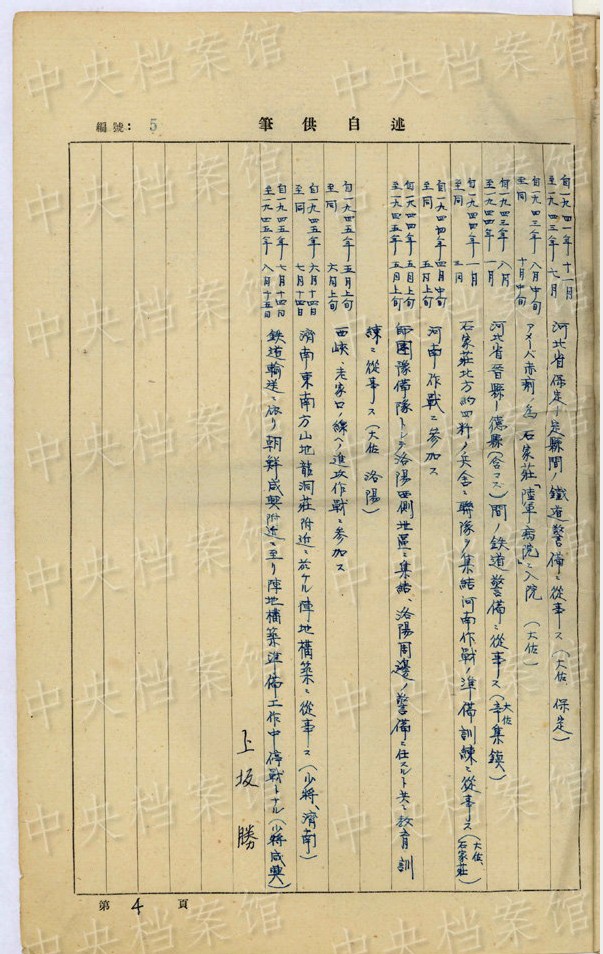 述自供筆
編號: 5
自一九四一年十一月
至一九四三年七月
河北省保定─定縣間ノ鐵道警備ニ從事ス(大佐、保定)
自一九四三年八月中旬
至同十月中旬
アメーバ赤痢ノ為石家莊「陸軍病院」ニ入院(大佐)
自一九四三年八月
至一九四四年一月
河北省晉縣─德縣(含マズ)間ノ鉄道警備ニ從事ス(大佐 辛集鎮、)
自一九四四年一月
至同三月
石家莊地方約四粁ノ兵舍ニ聯隊ヲ集結河南作戰ノ準備訓練ニ從事ス(大佐、石家莊)
自一九四四年四月中旬
至同五月上旬
河南作戰ニ參加ス
自一九四四年五月上旬
至一九四五年五月上旬
師團豫備隊トシテ洛陽西側地區ニ集結、洛陽周邊ノ警備ニ任スルト共ニ教育訓
練ニ從事ス(大佐 洛陽)
自一九四五年五月上旬
至同六月上旬
西峽、老家口ノ線ヘノ進攻作戰ニ參加ス
自一九四五年六月十四日
至同七月十四日
濟南東南方山地龍洞莊附近ニ於ケル陣地構築ニ從事ス(少將、濟南)
自一九四五年七月十四日
至一九四五年八月十五日
鉄道輸送ニ依リ朝鮮咸興附近ニ至リ陣地構築準備工作中停戰トナル(少將咸興)
上坂勝
第4頁
中央档案馆